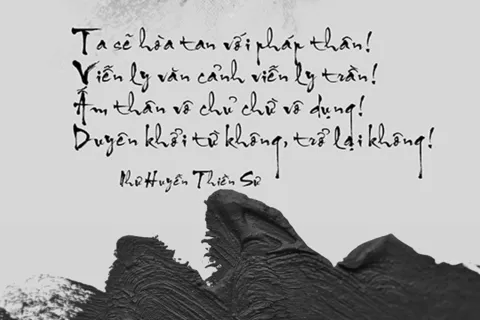 Ta sẽ hòa tan với pháp thân!
Viễn ly văn cảnh viễn ly trần!
Ấm thân vô chủ chữ vô dụng!
Duyên khởi từ không, trở lại không!
Như Huyền Thiền Sư